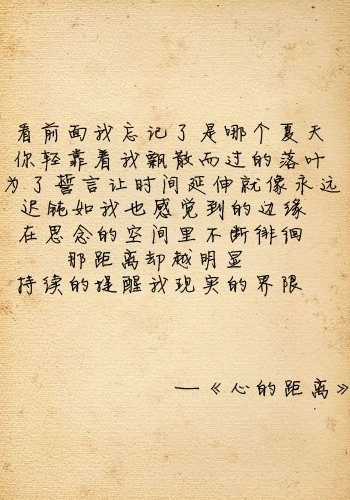 看前面我忘记了是哪个夏天
你轻靠着我飘散而过的落叶
为了誓言让时间延伸就像永远
迟钝如我也感觉到的边缘
在思念的空间里不断徘徊
那距离却越明显
持续的提醒我现实的界限
—《心的距离》